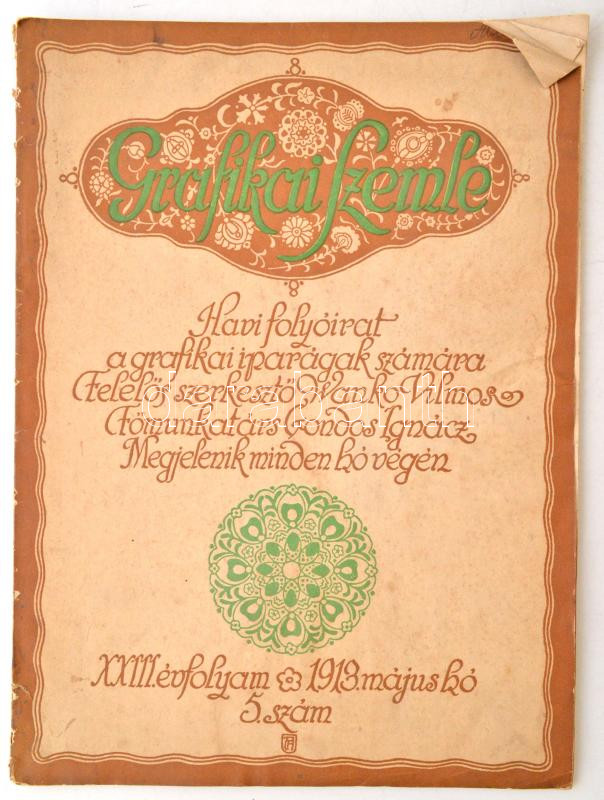 Grafikai Szemle
Havi folyóirat
a grafikai iparágak számára
Felelős szerkesztő Wanko Vilmos
Főmunkatárs Gondos Ignácz
Megjelenik minden hó végén
darabanth
XXIII. évfolyam 1913. május hó
5. szám